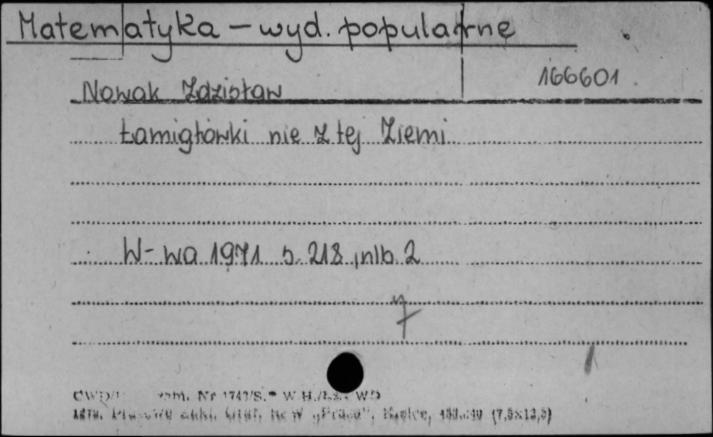 Matematyka - wyd. popularne
166601
Nowak Zdzisław
Łamigłówki nie z tej Ziemi
W-wa 1971 s. 218, nlb. 2
7
Nr 1747/S. W.H.
"Prasa", Kielce, (7,5x12,5)